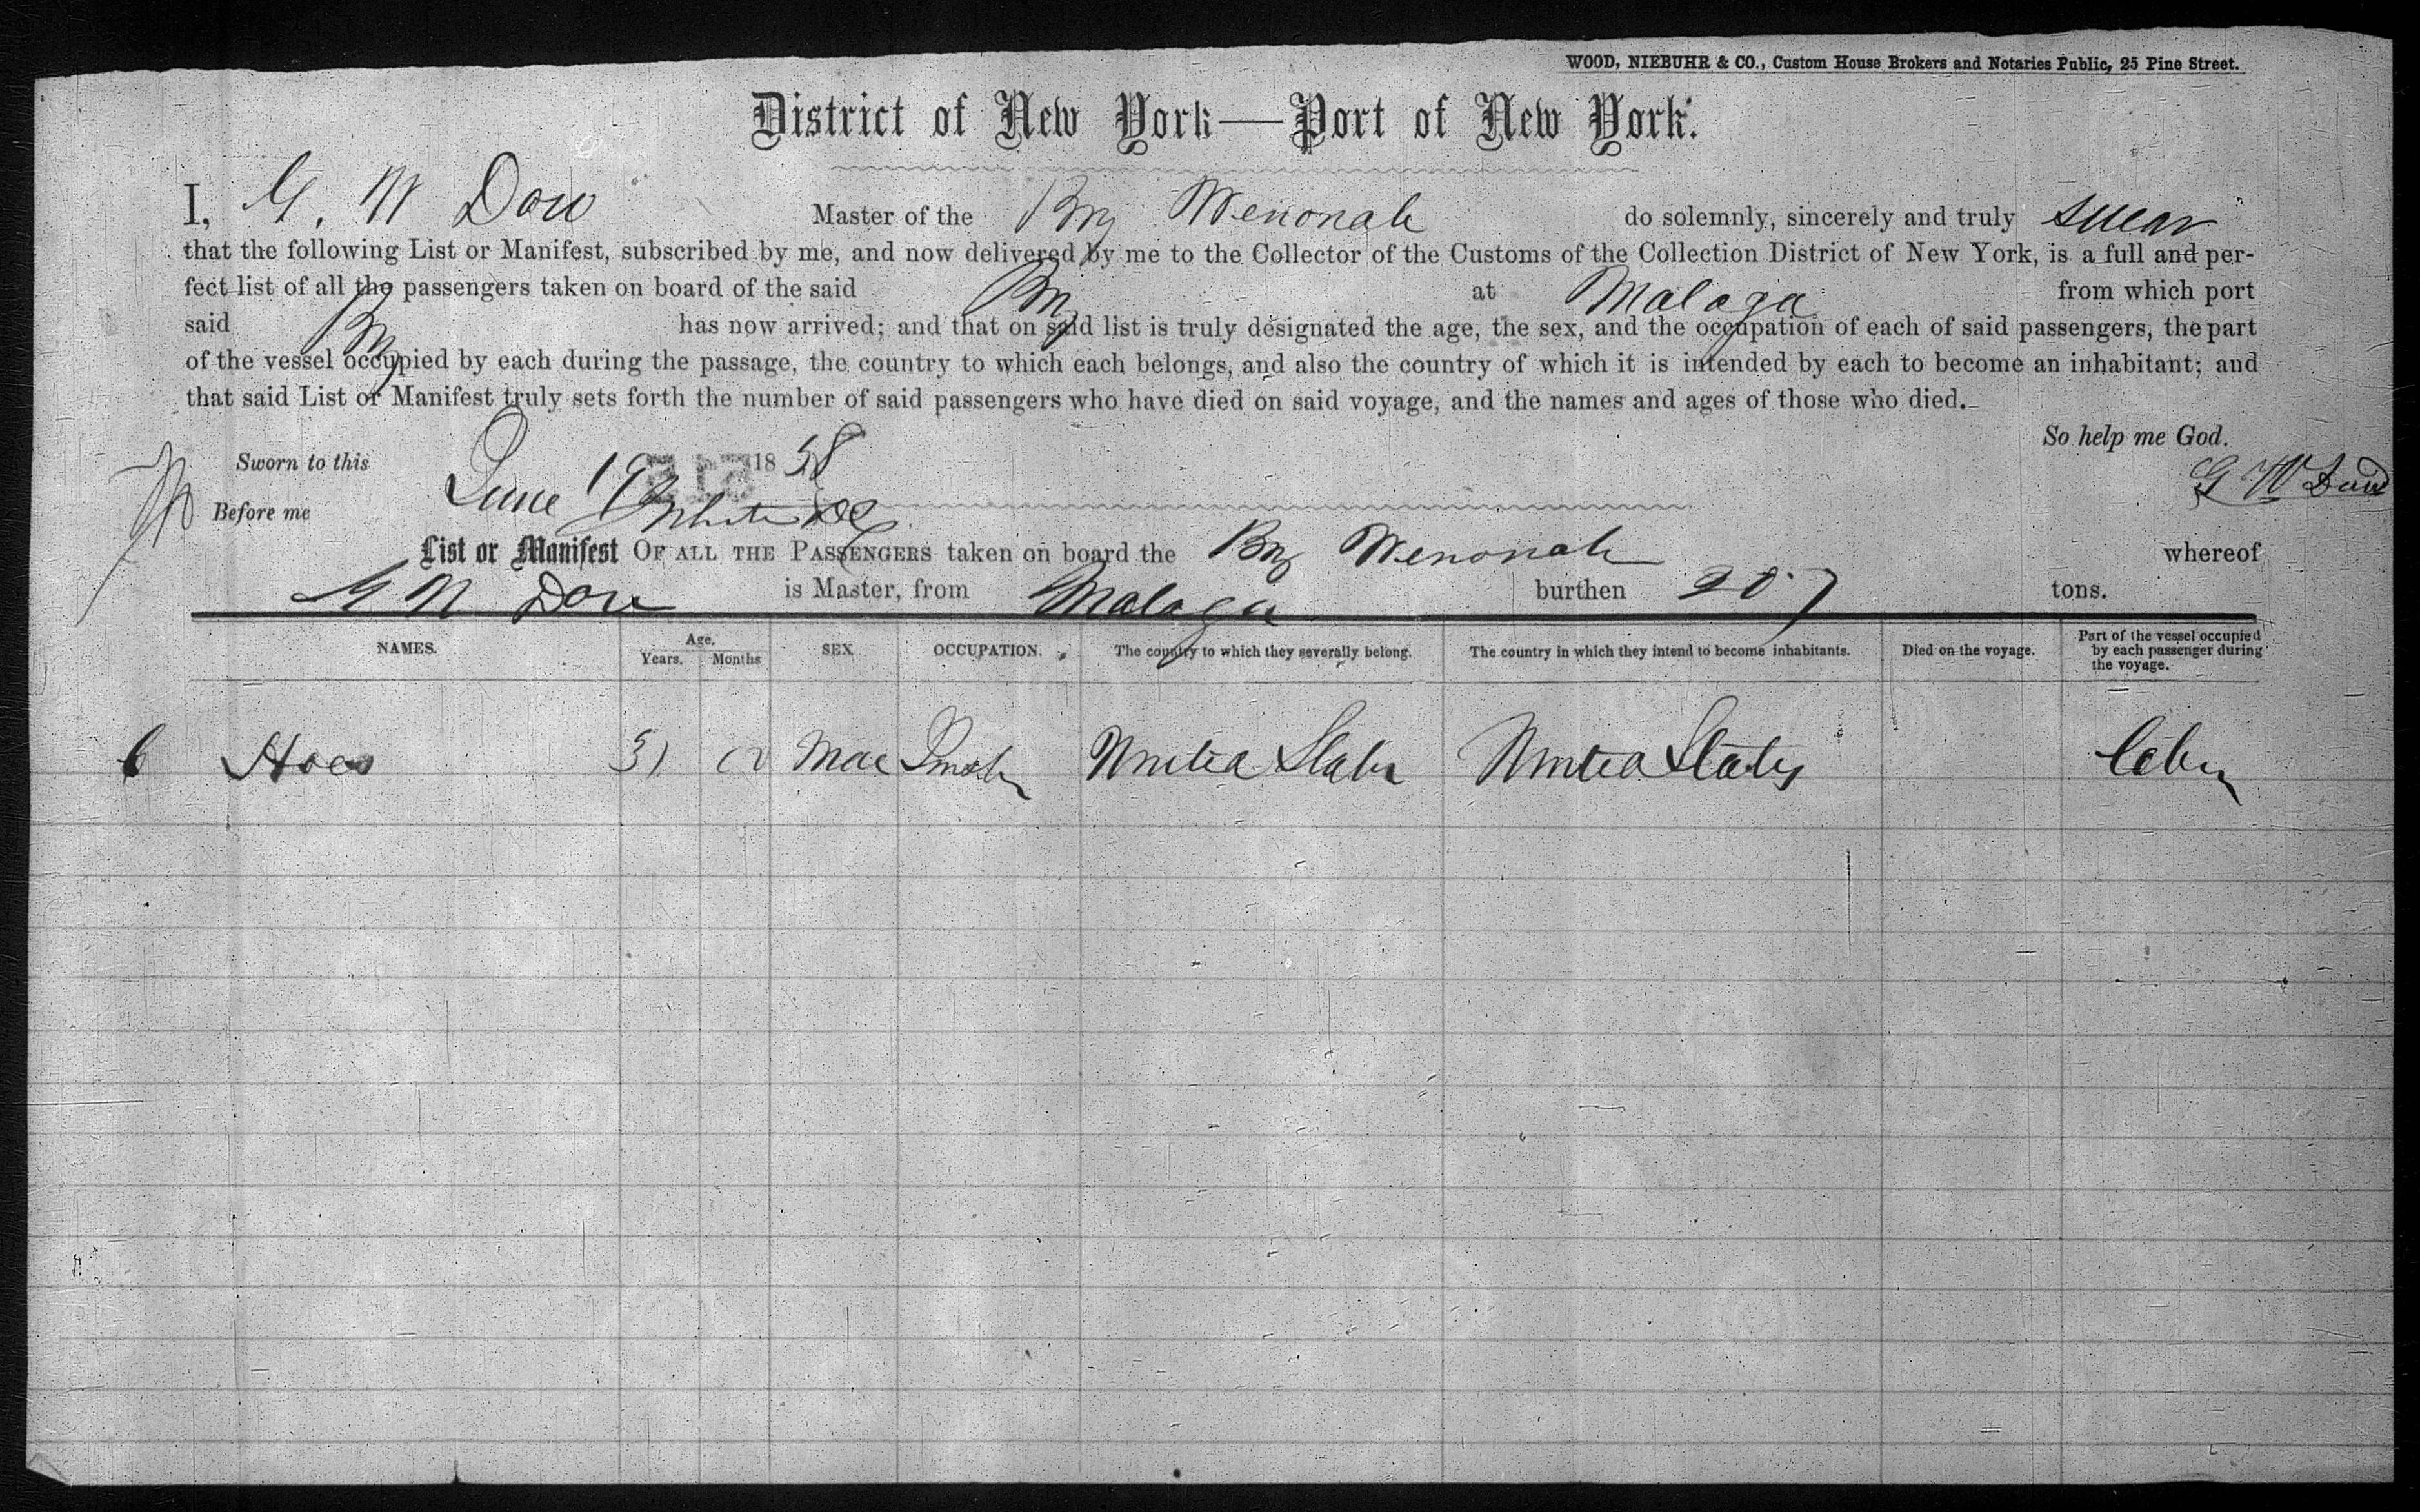 WOOD, NIEBUHR & CO., Custom House Brokers and Notaries Public, 25 Pine Street.
District of New York—Port of New York.
I, G. W Dow Master of the Brig Wenonah do solemnly, sincerely and truly swear
that the following List or Manifest, subscribed by me, and now delivered by me to the Collector of the Customs of the Collection District of New York, is a full and per-
fect list of all the passengers taken on board of the said Brig at Malaga from which port
said Brig has now arrived; and that on said list is truly designated the age, the sex, and the occupation of each of said passengers, the part
of the vessel occupied by each during the passage, the country to which each belongs, and also the country of which it is intended by each to become an inhabitant; and
that said List or Manifest truly sets forth the number of said passengers who have died on said voyage, and the names and ages of those who died.
So help me God.
Sworn to this June 19 1858 G W Dow
Before me
List or Manifest OF ALL THE PASSENGERS taken on board the Brig Wenonah whereof
G W Dow is Master, from Malaga burthen 207 tons.
NAMES. Age. Years. Months SEX OCCUPATION. The country to which they severally belong. The country in which they intend to become inhabitants. Died on the voyage. Part of the vessel occupied by each passenger during the voyage.
United States United States Cabin